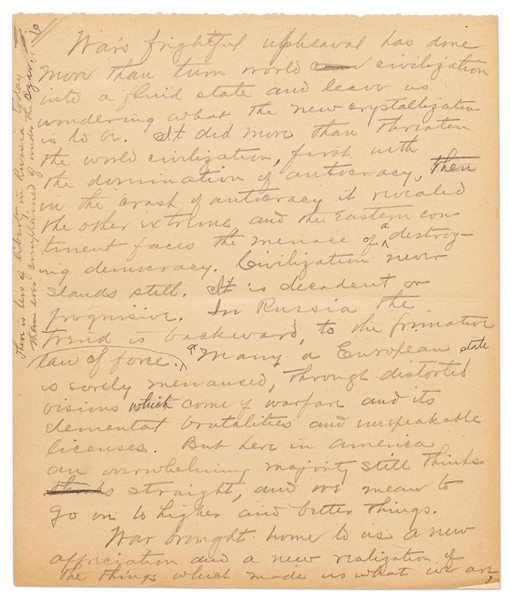 War's frightful upheaval has done
more than turn world civilization
into a fluid state and leave us
wondering what the new crystallization
is to be. It did more than threaten
the world civilization, first with
the domination of autocracy, then
in the crash of autocracy it revealed
the other extreme and the Eastern con-
tinent faces the menace of a destroy-
ing democracy. Civilization never
stands still. It is decadent or
progressive. In Russia the
trend is backward, to the primative
law of force. Many a European state
is sorely menaced, through distorted
visions which come of warfare and its
elemental brutalities and unspeakable
licenses. But here in America
an overwhelming majority still thinks
straight, and we mean to
go on to higher and better things.
War brought home to us a new
appreciation and a new realization of
the things which made us what we are,
There is less of liberty in Russia today
than ever complained of under the Czar.